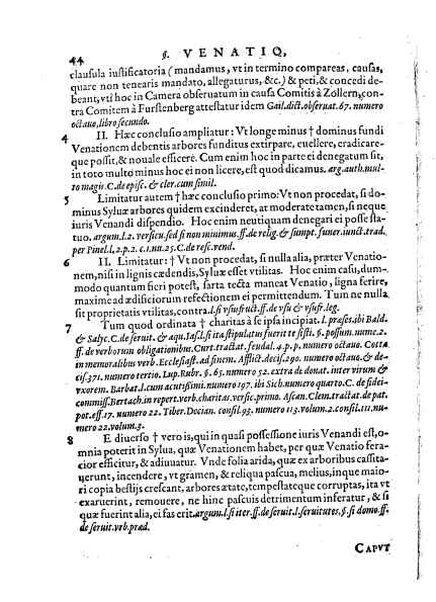 44 §. VENATIO,
clausula iustificatoria (mandamus, vt in termino compareas, causas,
quare non tenearis mandato, allegaturus, &c.) & peti, & concedi de-
beant, vti hoc in Camera obseruatum in causa Comitis à Zollern, con-
tra Comitem à Furstenberg attestatur idem Gail. dict. obseruat. 67. numero
octauo, libro secundo.
4 II. Hæc conclusio ampliatur: Vt longe minus † dominus fundi
Venationem debentis arbores funditus extirpare, euellere, eradicare-
que possit, & nouale efficere. Cum enim hoc in parte ei denegatum sit,
in toto multo minus hoc ei non licere, est quod dicamus. arg. auth. mul-
to magis. C. de episc. & cler. cum simil.
5 Limitatur autem † hæc conclusio primo: Vt non procedat, si do-
minus Syluæ arbores quidem excinderet, at moderate tamen, si neque
iuris Venandi dispendio. Hoc enim neutiquam denegari ei posse sta-
tuo. argum. l. 2. versicu. sed si non minimus. ff. de relig. & sumpt. funer. iunct. trad.
per Pinel. l. 2. p. 2. c. 1. nu. 25. C. de resc. vend.
6 II. Limitatur: † Vt non procedat, si nulla alia, præter Venatio-
nem, nisi in lignis cædendis, Syluæ esset vtilitas. Hoc enim casu, dum-
modo quantum fieri potest, sarta tecta maneat Venatio, ligna ferire,
maxime ad ædificiorum refectionem ei permittendum. Tum ne nulla
sit proprietatis vtilitas, contra l. si vsusfruct. ff. de vsu & vsufr. leg.
7 Tum quod ordinata † charitas à se ipsa incipiat. l. præses. ibi Bald.
& Salyc. C. de seruit. & aqu. l. si ita stipulatus fuero te sisti. §. possum. nume. 2.
ff. de verborum obligationibus. Curt. tractat. feudal. 4. p. p. numero octauo. Cotta
in memoralibus verb. Ecclesiast. ad finem. Afflict. decis. 290. numero octauo. & de-
cis. 371. numero tertio. Lup. Rubr. §. 65. numero 52. extra de donat. inter virum &
vxorem. Barbat. l. cum acutissimi. numero 197. ibi Sich. numero quarto. C. de fidei-
commiss. Bertach. in repert. verb. charitas. versic. primo. Ascan. Clem. tractat. de pat.
pot. eff. 17. numero 22. Tiber. Decian. consil. 93. numero 113. volum. 2. consil. 111. nu-
mero 22. volum. 3.
8 E diuerso † vero is, qui in quasi possessione iuris Venandi est, o-
mnia poterit in Sylua, quæ Venationem habet, per quæ Venatio fera-
cior efficitur, & adiuuatur. Vnde folia arida, quæ ex arboribus cassita-
uerunt, incendere, vt gramen, & reliqua pascua, melius, inque maio-
ri copia bestijs crescant, arbores ætate, tempestateque corruptas, ita vt
exaruerint, remouere, ne hinc pascuis detrimentum inferatur, & si
quæ fuerint alia, ei fas erit. argum. l. si iter. ff. de seruit. l. seruitutes. §. si domo. ff.
de seruit. vrb. præd.
CAPVT